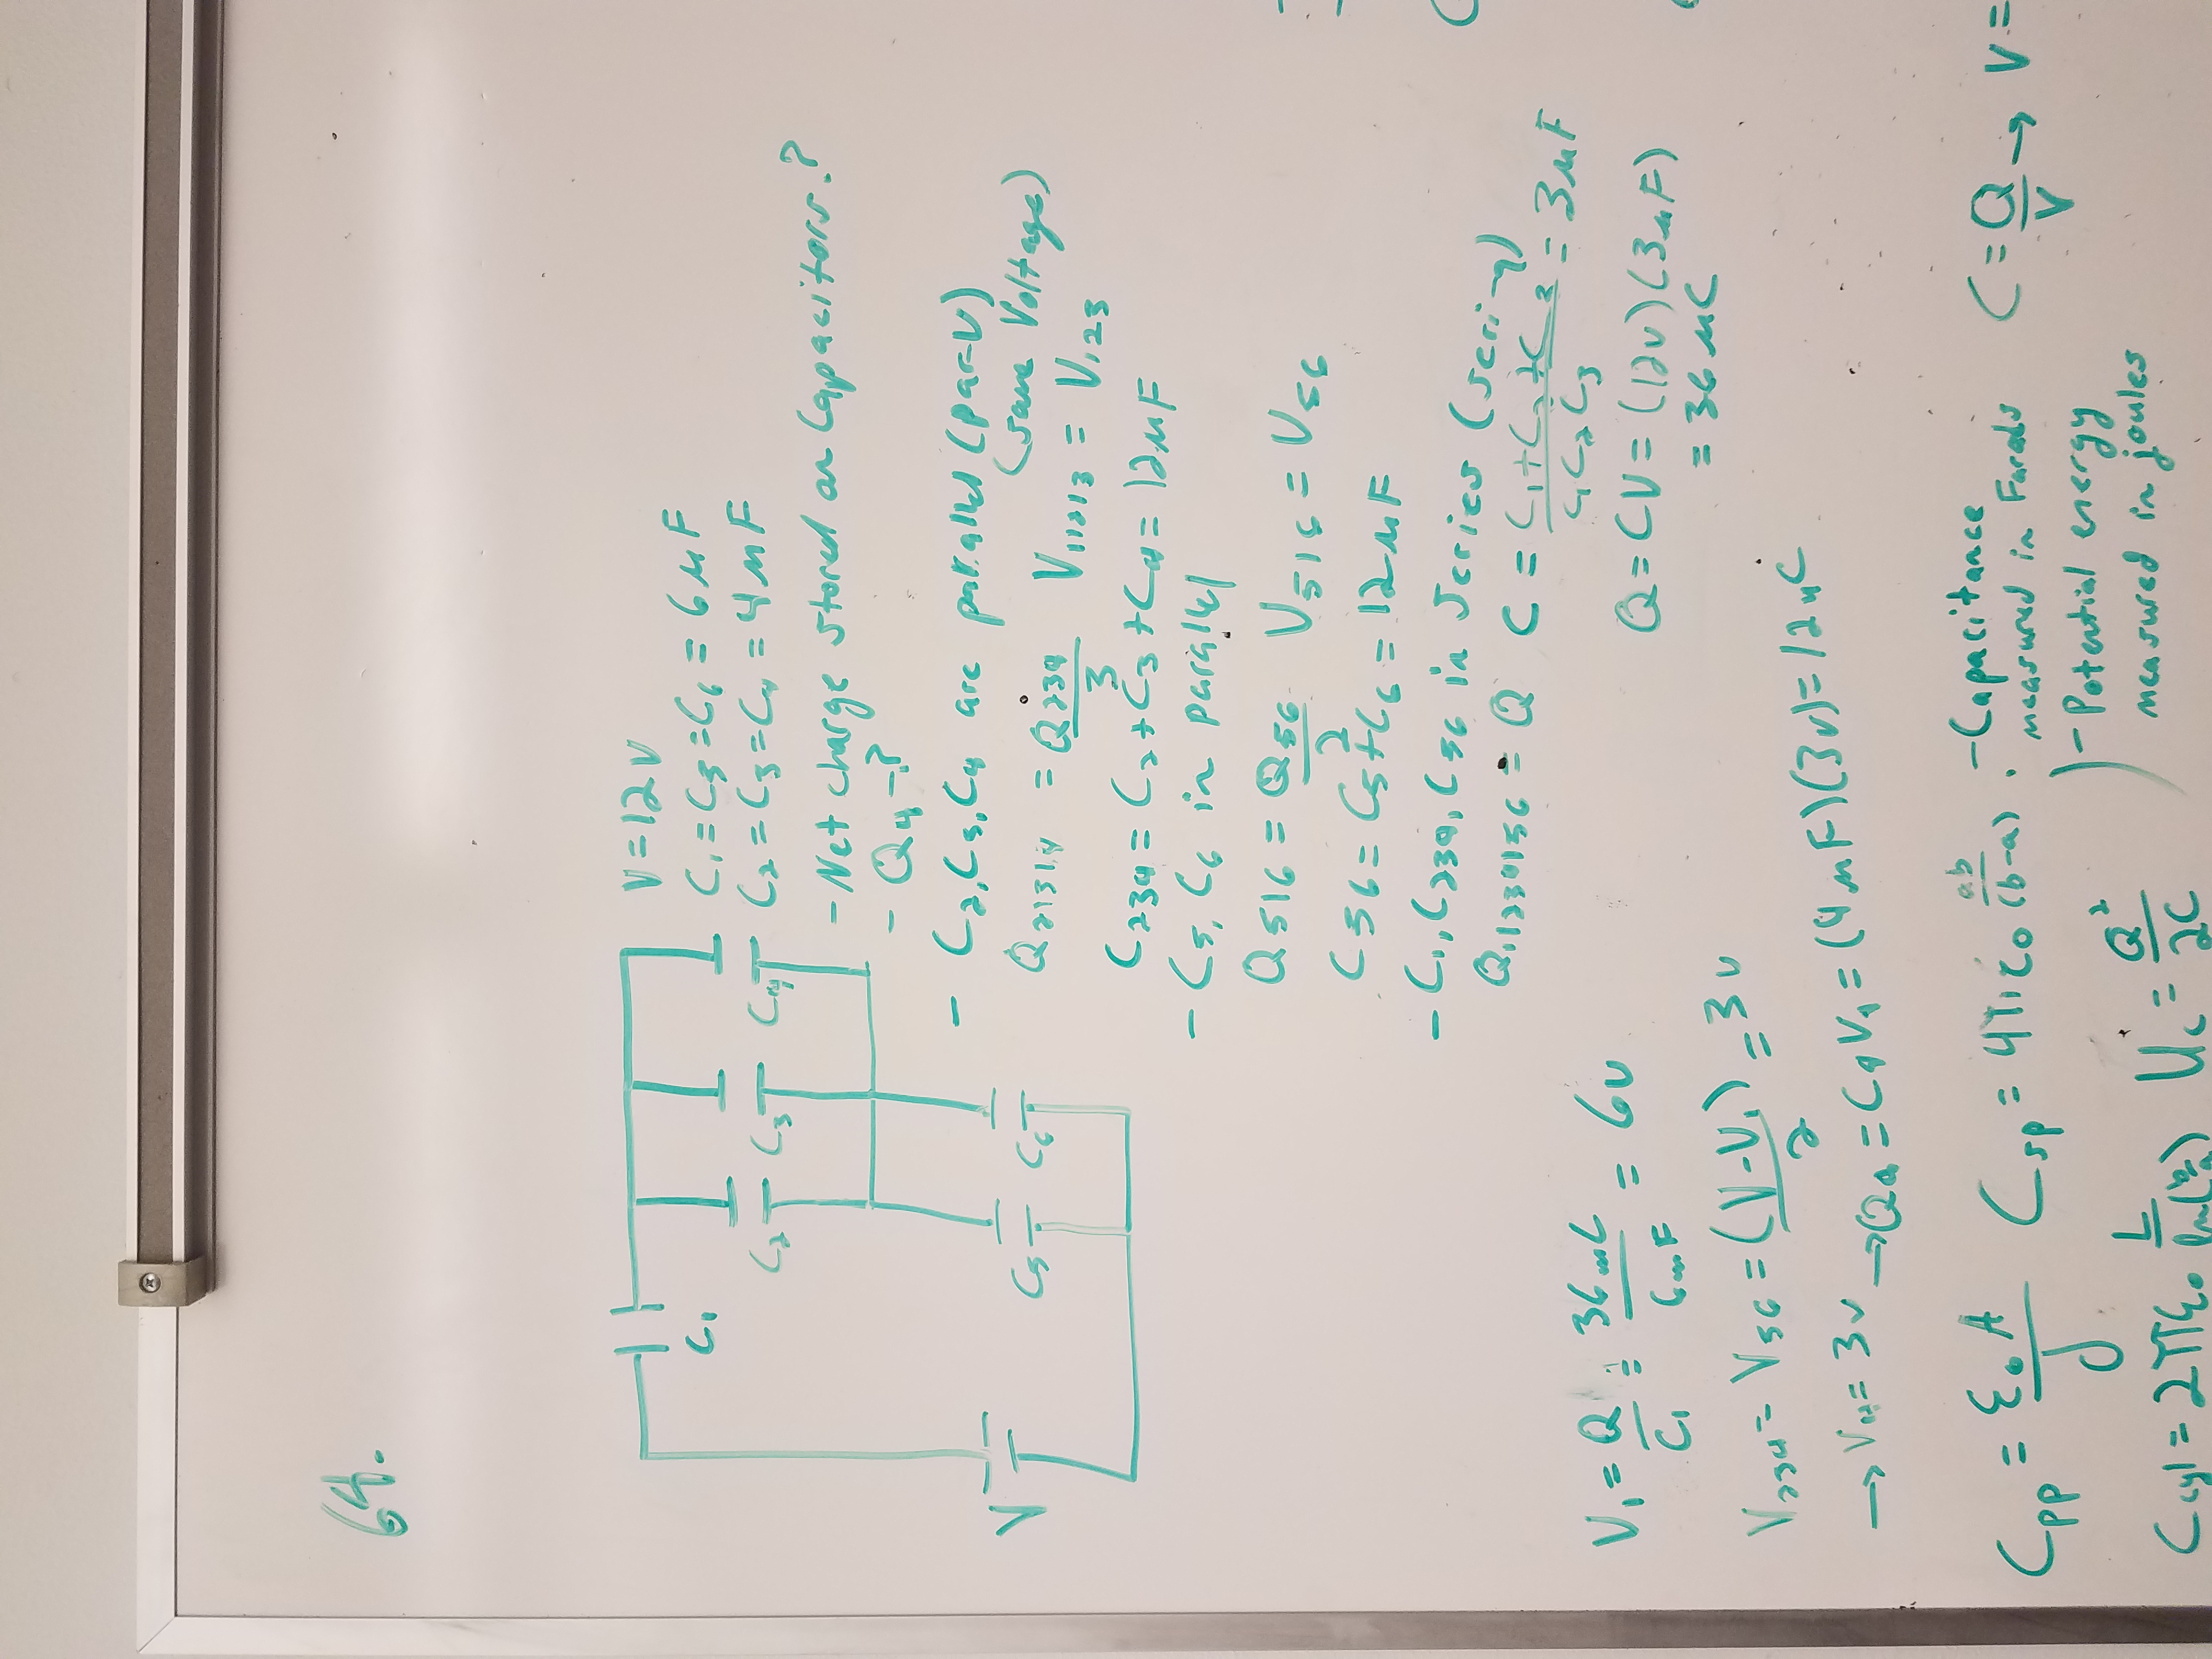 64.
C₁
C₂ C₃ C₄
V
C₅ C₆
V = 12 V
C₁ = C₅ = C₆ = 6 μF
C₂ = C₃ = C₄ = 4 μF
- Net charge stored on Capacitors?
- Q₄ - ?
- C₂, C₃, C₄ are parallel (par-V)
(same Voltage)
Q₂|₃|₄ = Q₂₃₄/3 V₁|₂|₃ = V₁₂₃
C₂₃₄ = C₂ + C₃ + C₄ = 12 μF
- C₅, C₆ in parallel
Q₅|₆ = Q₅₆/2 V₅|₆ = V₅₆
C₅₆ = C₅ + C₆ = 12 μF
- C₁, C₂₃₄, C₅₆ in Series (seri-q)
Q₁|₂₃₄|₅₆ = Q C = (C₁ + C₂ + C₃)/(C₁C₂C₃) = 3 μF
Q = CV = (12v)(3μF)
= 36 μC
V₁ = Q/C₁ = 36 μC/6 μF = 6v
V₂₃₄ = V₅₆ = (V - V₁)/2 = 3v
→ V₄ = 3v → Q₄ = C₄V₄ = (4 μF)(3v) = 12 μC
C_pp = ε₀A/d C_sp = 4πε₀ ab/(b-a)
- Capacitance
measured in Farads
C = Q/V → V =
- Potential energy
measured in joules
C_cyl = 2πε₀ L/ln(b/a) U_c = Q²/2C